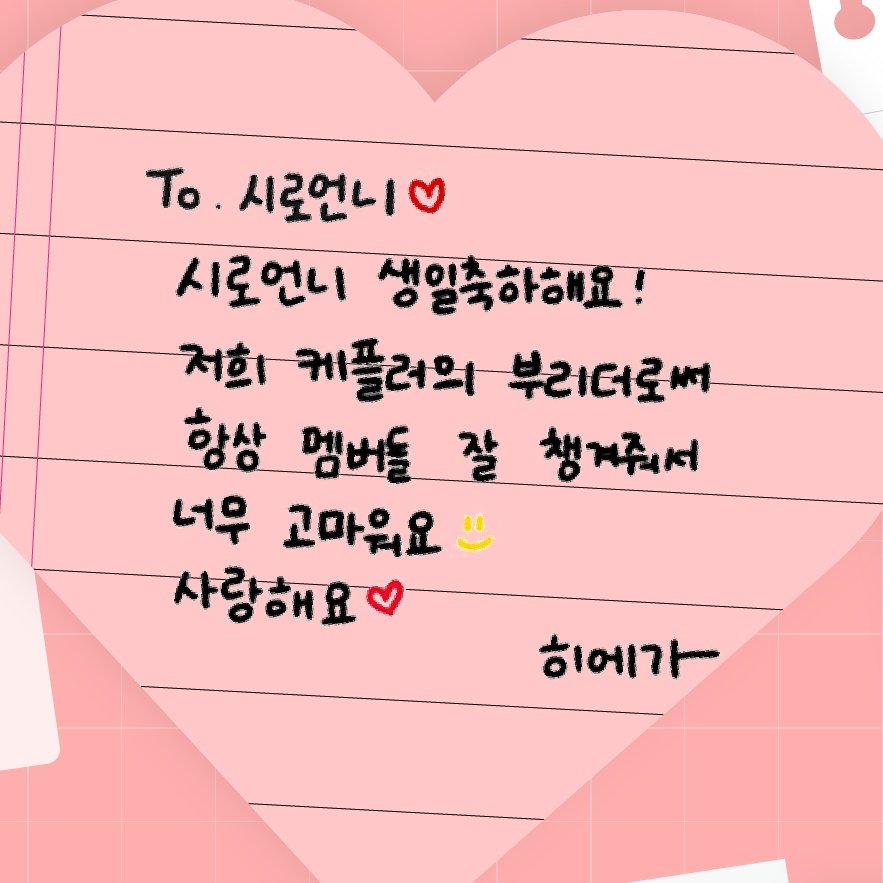 To. 시로언니♡
시로언니 생일축하해요!
저희 케플러의 부리더로써
항상 멤버들 잘 챙겨줘서
너무 고마워요
사랑해요♡
히에가ㅡ